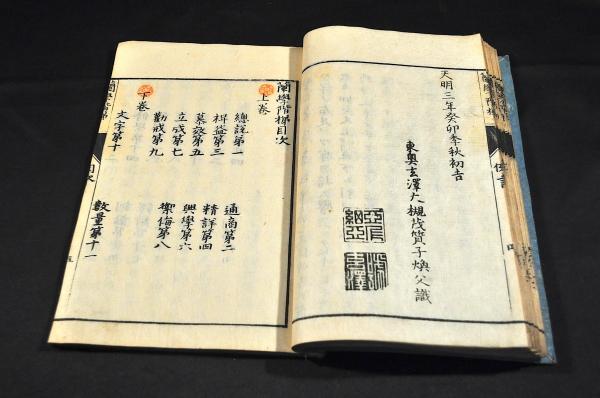 蘭學階梯
例言
天明三年癸卯季秋初吉
東奥玄澤大槻茂質子煥父識
蘭學階梯目次
上巻
總説第一　通商第二
裨益第三　精詳第四
慕效第五　興學第六
立成第七　禦侮第八
勸戒第九
下巻
文字第十　數量第十一
蘭學階梯
目次